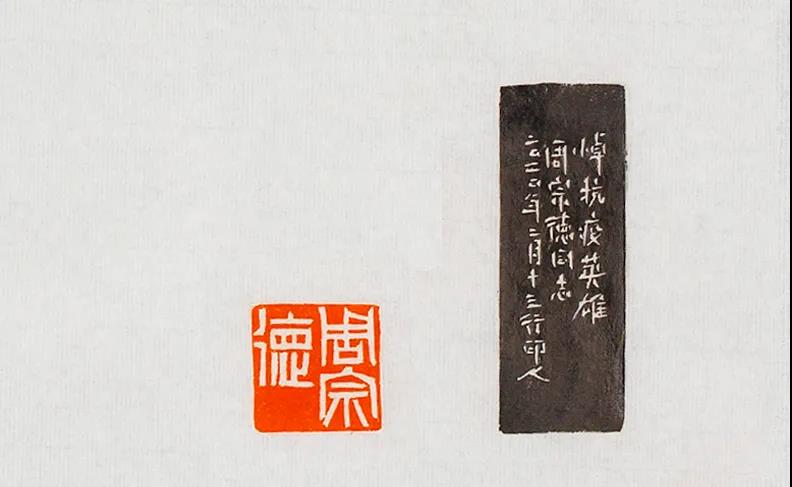 悼抗疫英雄
周宗德同志
二〇二〇年二月十三行印人
周宗
德